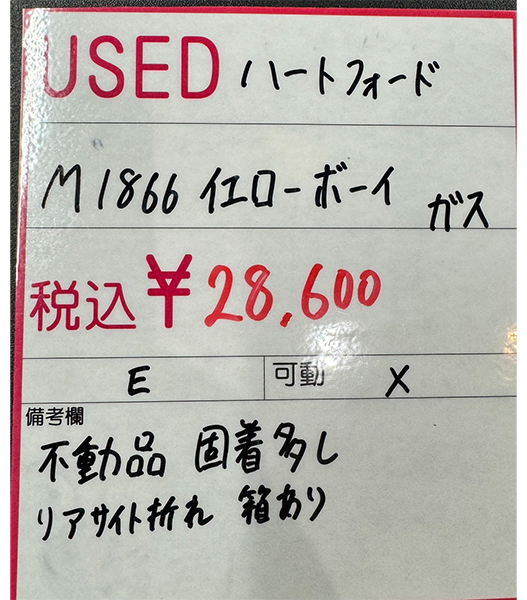 USED ハートフォード
M1866 イエローボーイ ガス
税込¥28,600
E 可動 X
備考欄
不動品 固着多し
リアサイト折れ 箱あり